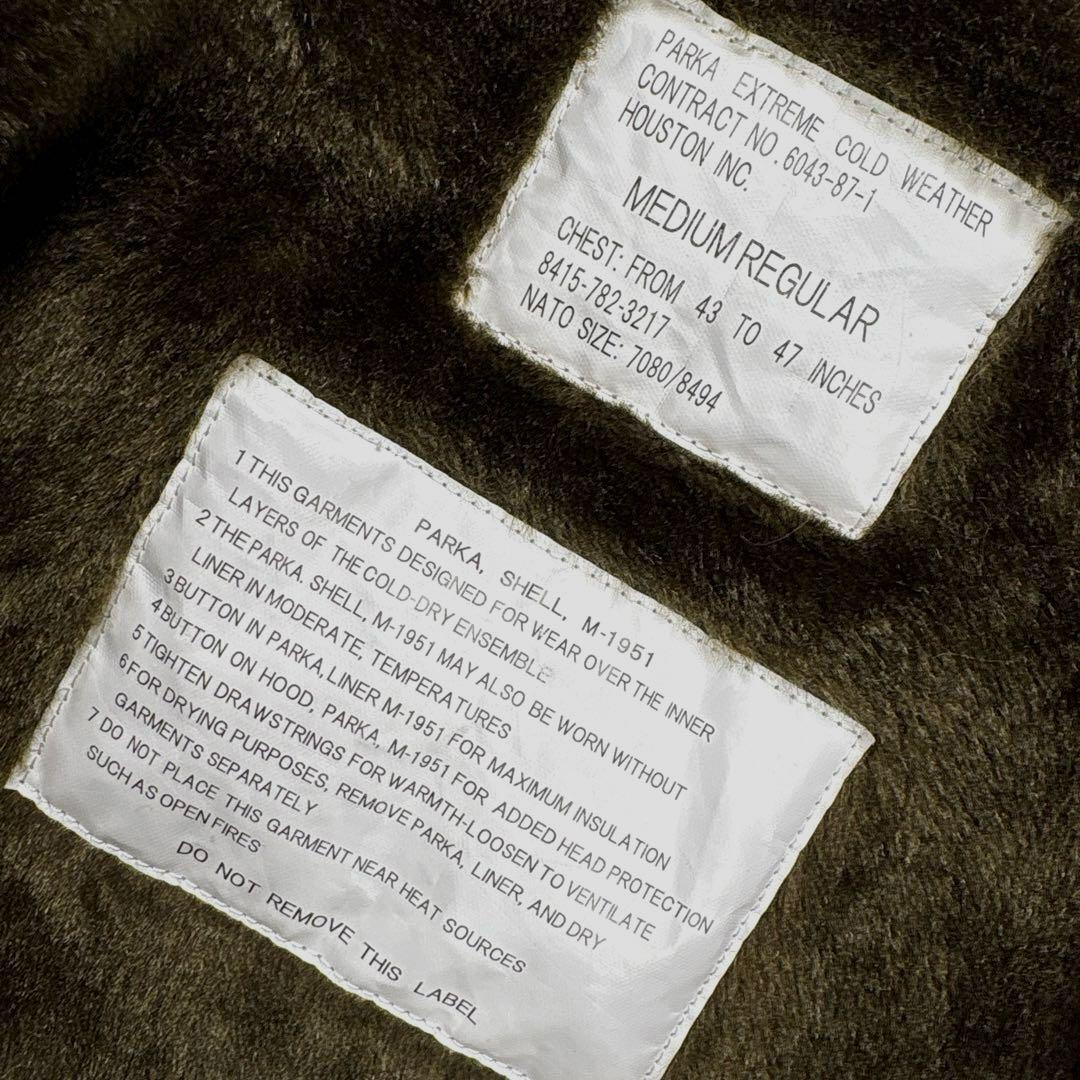 PARKA EXTREME COLD WEATHER
CONTRACT NO.6043-87-1
HOUSTON INC.
MEDIUM REGULAR
CHEST: FROM 43 TO 47 INCHES
8415-782-3217
NATO SIZE: 7080/8494
PARKA, SHELL, M-1951
1 THIS GARMENTS DESIGNED FOR WEAR OVER THE INNER
LAYERS OF THE COLD-DRY ENSEMBLE
2 THE PARKA. SHELL, M-1951 MAY ALSO BE WORN WITHOUT
LINER IN MODERATE, TEMPERATURES
3 BUTTON IN PARKA, LINER M-1951 FOR MAXIMUM INSULATION
4 BUTTON ON HOOD, PARKA, M-1951 FOR ADDED HEAD PROTECTION
5 TIGHTEN DRAWSTRINGS FOR WARMTH-LOOSEN TO VENTILATE
6 FOR DRYING PURPOSES, REMOVE PARKA, LINER, AND DRY
GARMENTS SEPARATELY
7 DO NOT PLACE THIS GARMENT NEAR HEAT SOURCES
SUCH AS OPEN FIRES
DO NOT REMOVE THIS LABEL